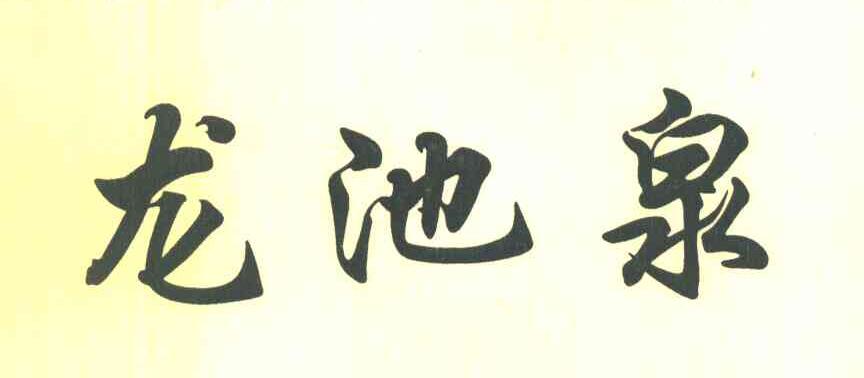 龙池泉